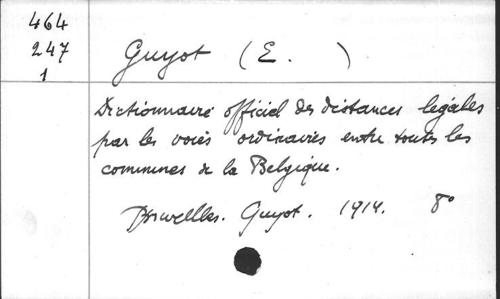 464
247
1
Guyot (E. )
Dictionnaire officiel des distances légales
par les voies ordinaires entre toutes les
communes de la Belgique.
Bruxelles. Guyot. 1914. 8°